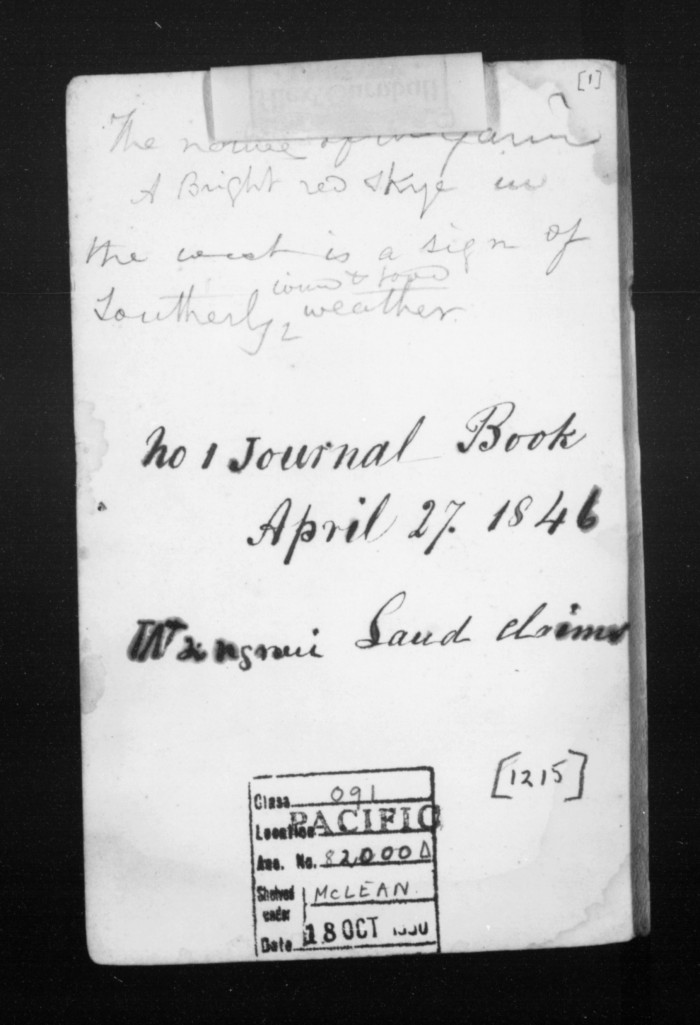 [1]
The native of
A Bright red Skye in
the west is a sign of
wind &
Southerly weather
No 1 Journal Book
April 27. 1846
Wanganui Land claims
[1215]
Class 091
Location PACIFIC
Acc. No. 82,000 A
Shelved under McLEAN.
Date 18 OCT